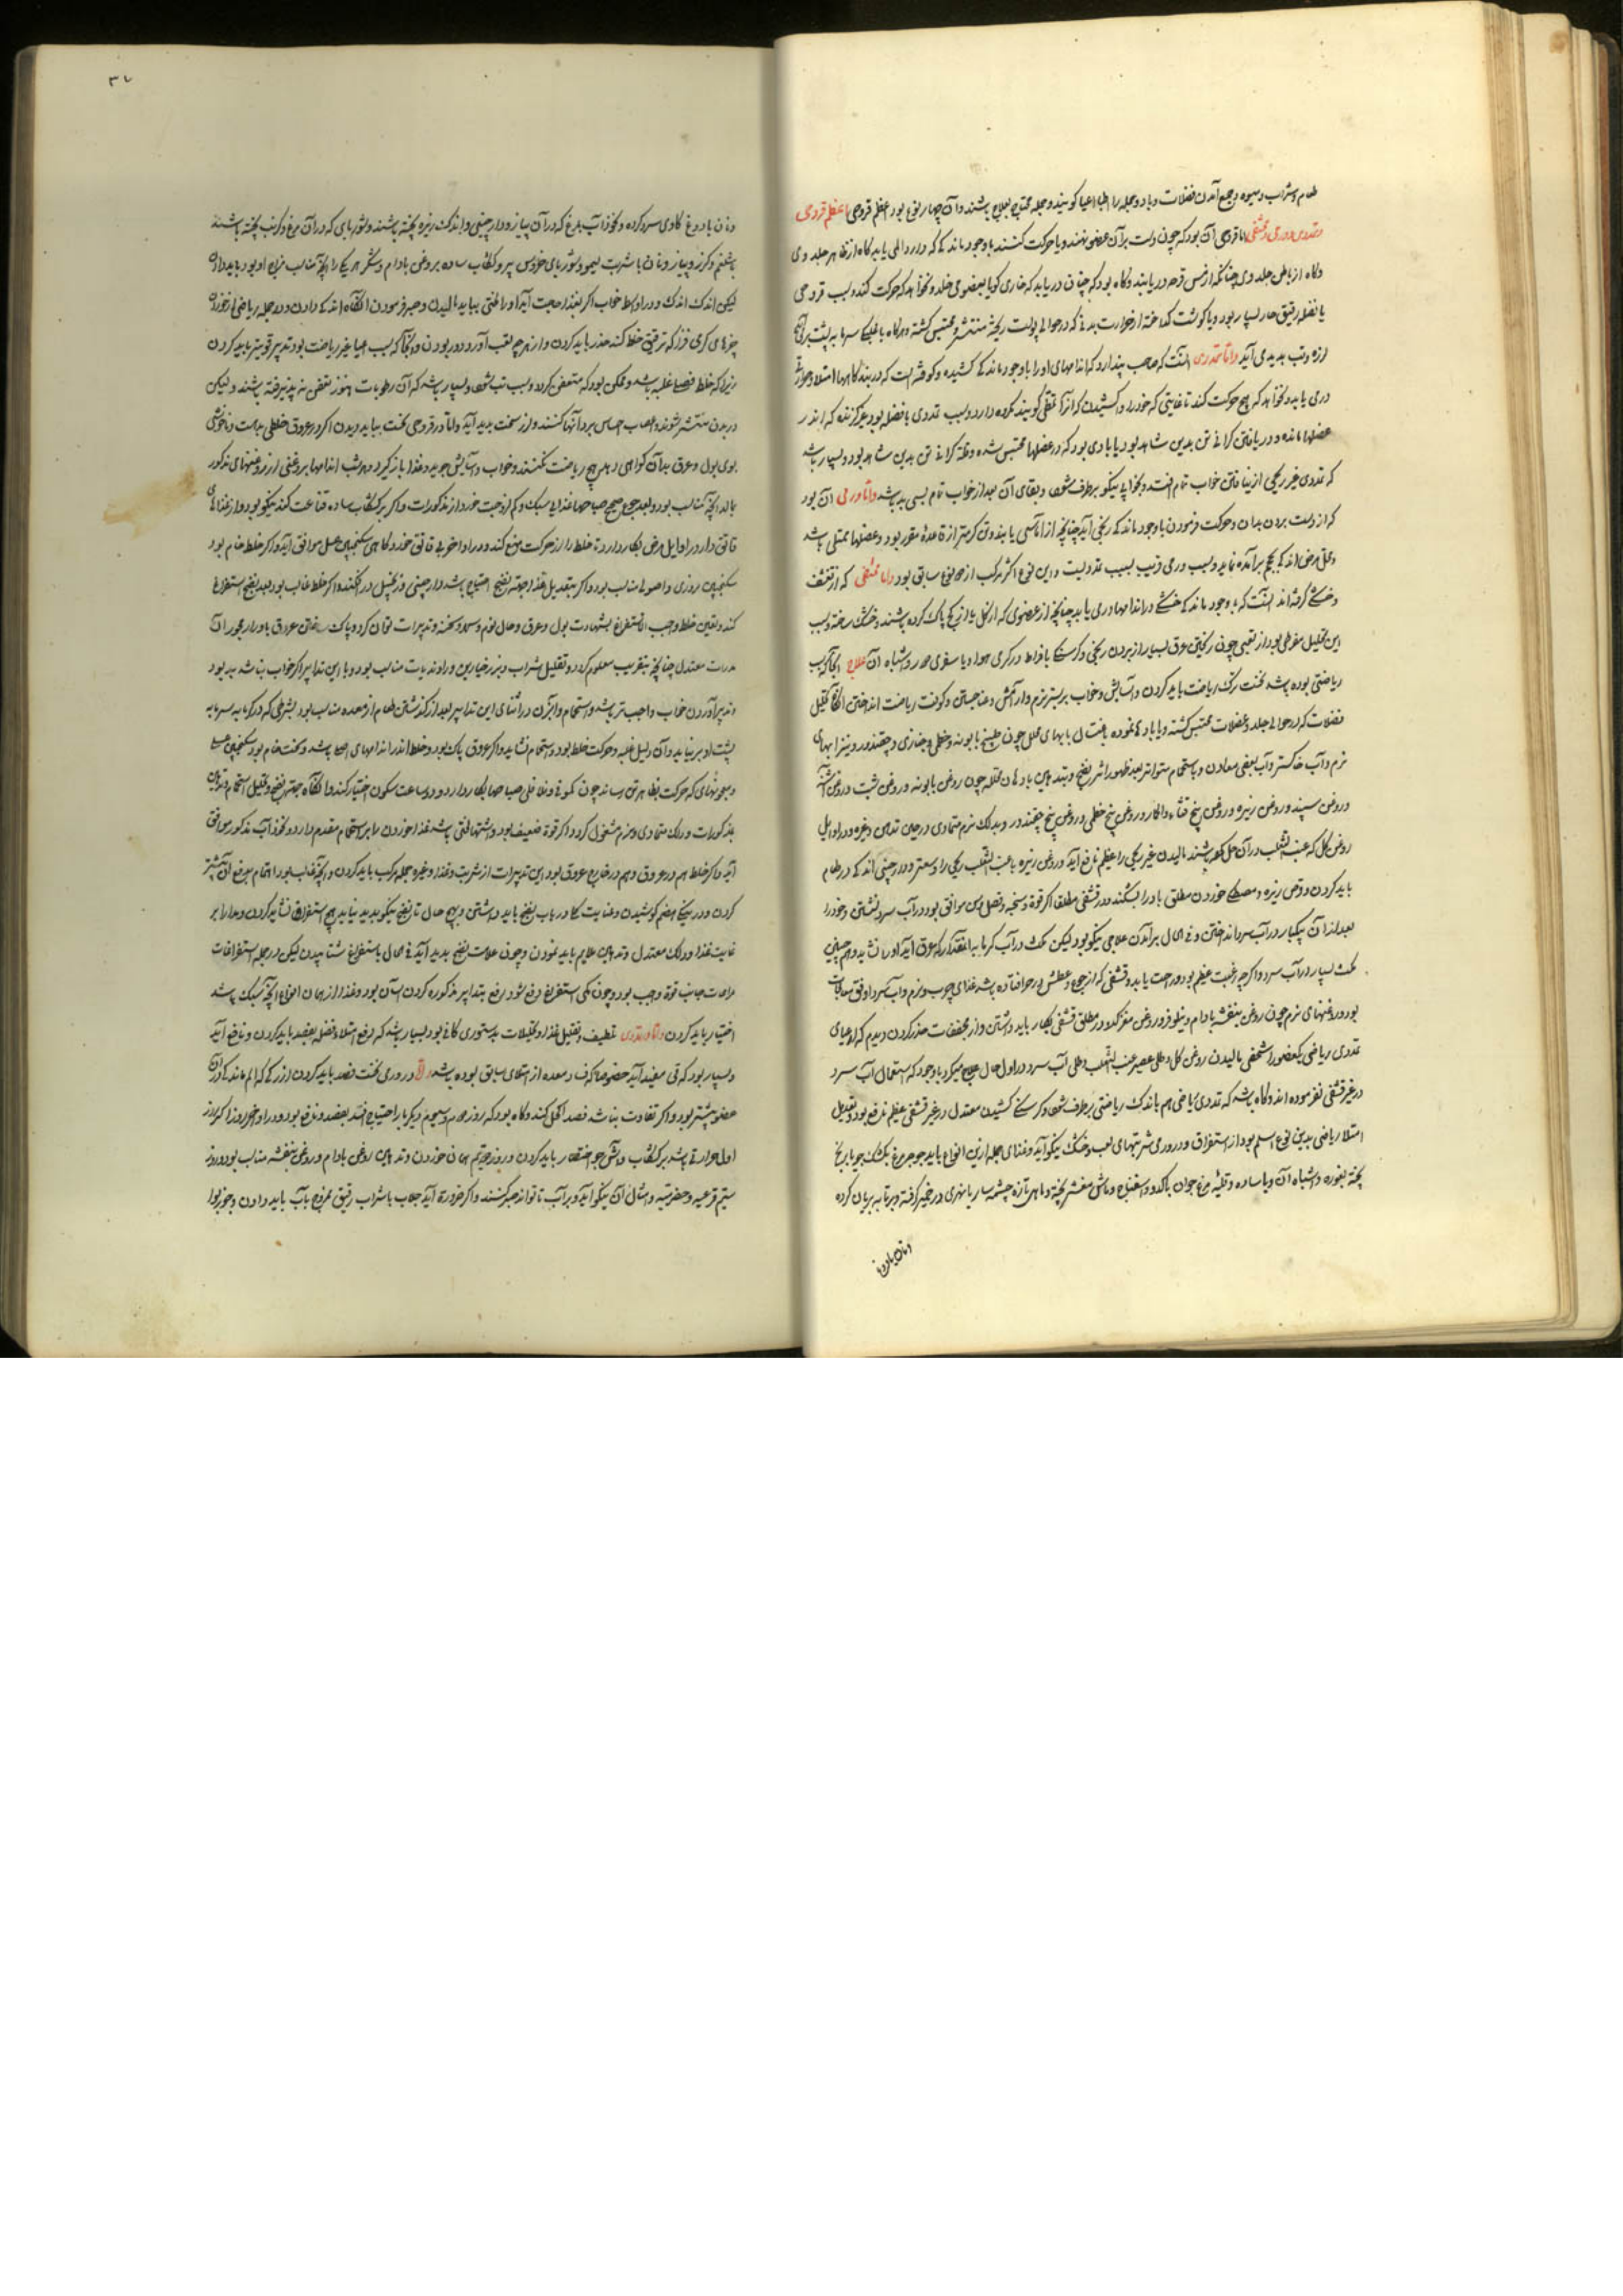 طعام و شراب و میوه و جمع آمدن فضلات و باد و جمله را اطبا اعیا گویند و جمله محتاج بعلاج باشند و آن چهار نوع بود اعظم قروحی
و تمددی و ورمی و قشفی اما قروحی آن بود که چون دست بر آن عضو نهند و یا حرکت کنند با وجود ماندگی که دارد المی یابد گاه از ظاهر جلد وی
و گاه از باطن جلد وی چنانکه از لمس قرحه دریابند و گاه بود که چنان دریابد که خاری گویا بعضو می خلد و نخواهد که حرکت کند و سبب قروحی
یا فضله رقیق حار بسیار بود و یا گوشت گداخته از حرارت بدنی که در حوالی پوست ریخته منتشر و محتبس گشته و هرگاه با غلبگی سرما به پشت بر
لرزه و تب پدید می آید و اما تمددی آنست که صاحب پندارد که اندامهای او را با وجود ماندگی کشیده و کوفته است که در بندگاهها امتلا و
در می یابد و نخواهد که هیچ حرکت کند تا غایتی که خود را و کشیدن که آنرا تمطی گویند مکروه دارد و سبب تمددی یا فضله بود غیر گزنده که اندر
عضلها مانده و دریافتن گرانی تن بدین شاهد بود یا بادی بود که در عضلها محتبس شده و قلت گرانی تن بدین شاهد بود و بسیار باشد
که تمددی غیر ریحی از نیافتن خواب تمام افتد و بخوابی نیکو برطرف شود و بقای آن بعد از خواب تمام بسی بد باشد و اما ورمی آن بود
که از دست بردن بدان و حرکت فرمودن با وجود ماندگی رنجی آید چنانچه از اماسی یابند و تن گرمتر از قاعده مقرر بود و عضلها ممتلی باشد
و محل مرض اندکی بحجم برآمده نماید و سبب ورمی قریب بسبب تمددیست و این نوع اکثر مرکب از هر دو نوع سابق بود و اما قشفی که از تقشف
و خشکی گرفته اند آنست که با وجود ماندگی خشکی در اندامها دریابد چنانچه از عضوی که از گل یا از گچ پاک کرده باشند و خشک ساخته و سبب
این تحلیل مفرطی بود از تعبی چون ریختن عرق بسیار از بردن رنجی و گرسنگی با فراط در گرمی هوا و یا سفری و اشباه آن علاج آنجا که سبب
ریاضتی بوده باشد نخست ترک ریاضت باید کردن و آسایش و خواب بر بستر نرم و آرامش و کوفت ریاضت انداختن آنگاه تحلیل
فضلات که در حوالی جلد و عضلات محتبس گشته و یا باد نموده باغتسال بابهای محلل چون طبیخ بابونه و خطمی و خبازی و چقندر و نیز آبهای
نرم و آب خاکستر و آب بعضی معادن و باستحمام متواتر بعد ظهور اثر نضج و بتدهین بادهان محلله چون روغن بابونه و روغن شبت و روغن
و روغن سپند و روغن زیره و روغن بیخ قثاء الحمار و روغن بیخ خطمی و روغن بیخ چقندر و بدلک نرم متمادی در حین تدهین و غیره و در اوایل
روغن گل که عنب الثعلب در آن حل کرده باشند مالیدن غیر ریحی را عظیم نافع آید و روغن زیره با عنب الثعلب ریحی را و سعتر و دارچینی اندکی در طعام
باید کردن و قرص زیره و مصطکی خوردن مطلق باد را بشکند و در قشفی مطلقا اگر قوة و سحنه و فصل و سن موافق بود در آب سرد نشستن و خود را
بعد از آن یکبار در آب سرد انداختن و فی الحال برآمدن علاجی نیکو بود لیکن مکث در آب گرمابه انقدر که عرق آید او را نشاید و همچنین
مکث بسیار در آب سرد و اگرچه رغبت عظیم بود و راحت یابد و قشفی که از جوع و عطش در هوا افتاده باشد غذای چرب و نرم و آب سرد اوفق معالجات
بود و روغنهای نرم چون روغن بنفشه بادام و نیلوفر و روغن مغز کدو در مطلق قشفی بکار باید داشتن و از مجففات حذر کردن و دیدم که اعیای
تمددی ریاضی یکعضو را شخصی بمالیدن روغن گل و طلی عصیر عنب الثعلب و طلی آب سرد در اول حال علاج میکرد با وجود که استعمال آب سرد
در غیر قشفی نفرموده اند و گاه باشد که تمددی ریاضی هم باندک ریاضتی برطرف شود و گرسنگی کشیدن معتدل در غیر قشفی عظیم نافع بود و تعدیل
امتلا ریاضی بدین نوع اسلم بود از استفراغ و در ورمی شربتهای لعب و خنک نیکو آید و غذای جمله ازین انواع باید جوجه مرغ بکشک جو یا برنج
پخته بغوره و اشباه آن و یا ساده و قلیه مرغ جوان با کدو و اسفناج و ماش مقشر پخته و ماهی تازه چشمه سار یا نهری در خمیر گرفته و بر تابه بریان کرده
و نان با دوغ
۳۷
و نان با دوغ گاوی سرد کرده و نخوداب بمرغ که در آن پیاز و دارچینی و اندک زیره پخته باشند و شوربایی که در آن مرغ و کرنب پخته باشند
با شلغم و گزر و پیاز و نان با شربت لیمو و شوربای خروس پیر و کشکاب ساده بروغن بادام و شکر هر یک را آنچه مناسب مزاج او بود باید داد
لیکن اندک اندک و در اوسط خواب اگر بغذا حاجت آید او را لختی بباید مالیدن و صبر فرمودن آنگاه اندکی دادن و در جمله ریاضی از خوردن
چیزهای گرمی فزا که ترقیق خلط کند حذر باید کردن و از هرچه لعب آورد دور بودن و آنجا که سبب اعیا غیر ریاضت بود تدبیر قویتر باید کردن
زیرا که خلط فضا غلبه باشد و ممکن بود که متعفن گردد و سبب تب شود و بسیار باشد که آن رطوبات هنوز تعفن نپذیرفته باشند و لیکن
در بدن منتشر شوند و اعصاب احساس برد آنها کنند و لرز سخت پدید آید و اما در قروحی نخست بباید دیدن اگر در عروق خلطی بداست و ناخوشی
بوی بول و عرق بدان گواهی دهد هیچ ریاضت نکنند و خواب و آسایش جوید و غذا باز گیرد و هر شب اندامها بروغنی از روغنهای مذکور
بمالد آنچه مناسب بود و بعد جوع صحیح صباحها غذایی سبک و کم از وجبت خورد از مذکورات و اگر بر کشکاب ساده قناعت کند نیکو بود و از غذاهای
قانق دار در اوایل مرض بکار دارد تا خلط را از حرکت منع کند و در اواخر بی قانق خورد و گاهی سکنجبین عسلی موافق آید و اگر خلط خام بود
سکنجبین بزوری و اصولی مناسب بود و اگر بتعدیل غذا بجهت نضج احتیاج باشد دارچینی و زنجبیل در افکنند و اگر خلط غالب بود بعد نضج استفراغ
کند و یقین خلط واجب الاستفراغ بشهادت بول و عرق و حال نوم و سهر و سحنه و تدبیرات توان کرد و پاک ساختن عروق باورار مجوز آن
مدرات معتدل چنانچه بتقریب معلوم گردد و تقلیل شراب و بزر خیارین و راوند بات مناسب بود و با این تدابیر اگر خواب نباشد بد بود
و تدبیر آوردن خواب واجب تر باشد و استحمام و ابزن در اثنای این تدابیر بعد از گذشتن طعام از معده مناسب بود بشرطی که در گرمابه سرما به
پشت او بر نیاید و آن دلیل غلبه و حرکت خلط بود و استحمام نشاید و اگر عروق پاک بود و خلط اندر اندامهای باشد و سخت خام بود سکنجبین عسلی
و معجونهای که حرکت بظاهر تن رساند چون کمونی و فلافلی صباحها بکار دارد و دو ساعت سکون اختیار کند و آنگاه بجهت نضج و تحلیل استحمام و تدهین
بمذکورات و دلک متمادی و نرم مشغول گردد و اگر قوة ضعیف بود و اشتها التی باشد غذا خوردن را بر استحمام مقدم دارد و نخوداب مذکور موافق
آید و اگر خلط هم در عروق و هم در خارج عروق بود این تدبیرات از شربت و غذا و غیره جمله مرکب باید کردن و آنچه غالب بود اهتمام برفع آن بیشتر
کردن و در نیکی هضم کوشیدن و عنایت کلا در باب نضج باید داشتن و بهیچ حال تا نضج نیکو پدید نیاید هیچ استفراغ نشاید کردن و مدار بر
غایت غذا و دلک معتدل و تدهین ملایم باید نمودن و چون علامت نضج پدید آید فی الحال باستفراغ شتابیدن لیکن در جمله استفراغات
مراعات جانب قوة واجب بود و چون تمکی استفراغ دفع شود رفع بتدابیر مذکوره کردن آسان بود و غذا از همان انواع آنچه سبک باشد
اختیار باید کردن و اما در تمددی تلطیف و تقلیل غذا و تحلیلات بدستوری کافی بود و بسیار باشد که رفع امتلا فضله بفصد باید کردن و نافع آید
و بسیار بود که قی مفید آید خصوصا که فساد معده از امتلای سابق بوده باشد و اما در ورمی نخست فصد باید کردن از رگی که الم ماندگی در آن
عضو بیشتر بود و اگر تفاوت نباشد فصد اکحل کند و گاه بود که روز دوم و سیوم دیگر بار احتیاج افتد بفصد و نافع بود و در اواخر روز اگر از روز
اول حرارتی باشد بر کشکاب و آش جو اختصار باید کردن و روز دویم همان خوردن و تدهین روغن بادام و روغن بنفشه مناسب بود و روز
سیم قرعیه و حصرمیه و امثال آن نیکو آید و بر آب تا تواند صبر کنند و اگر ضرورة آید جلاب با شراب رقیق ممزوج بآب باید دادن و خوربوا